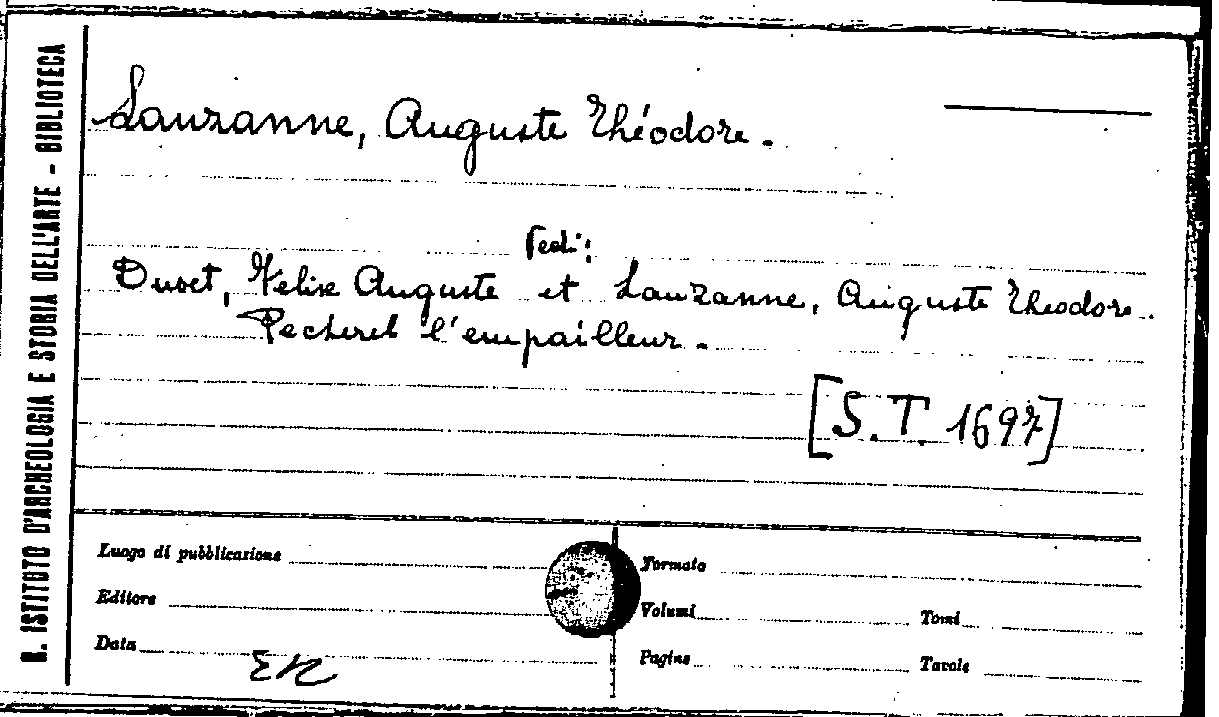 R. ISTITUTO D'ARCHEOLOGIA E STORIA DELL'ARTE - BIBLIOTECA
Lauzanne, Auguste Théodore.
Vedi:
Duvet, Felix Auguste et Lauzanne, Auguste Théodore.
Pecherel l'empailleur.
[S.T. 1697]
Luogo di pubblicazione
Editore
Data
Formato
Volumi Tomi
Pagine Tavole